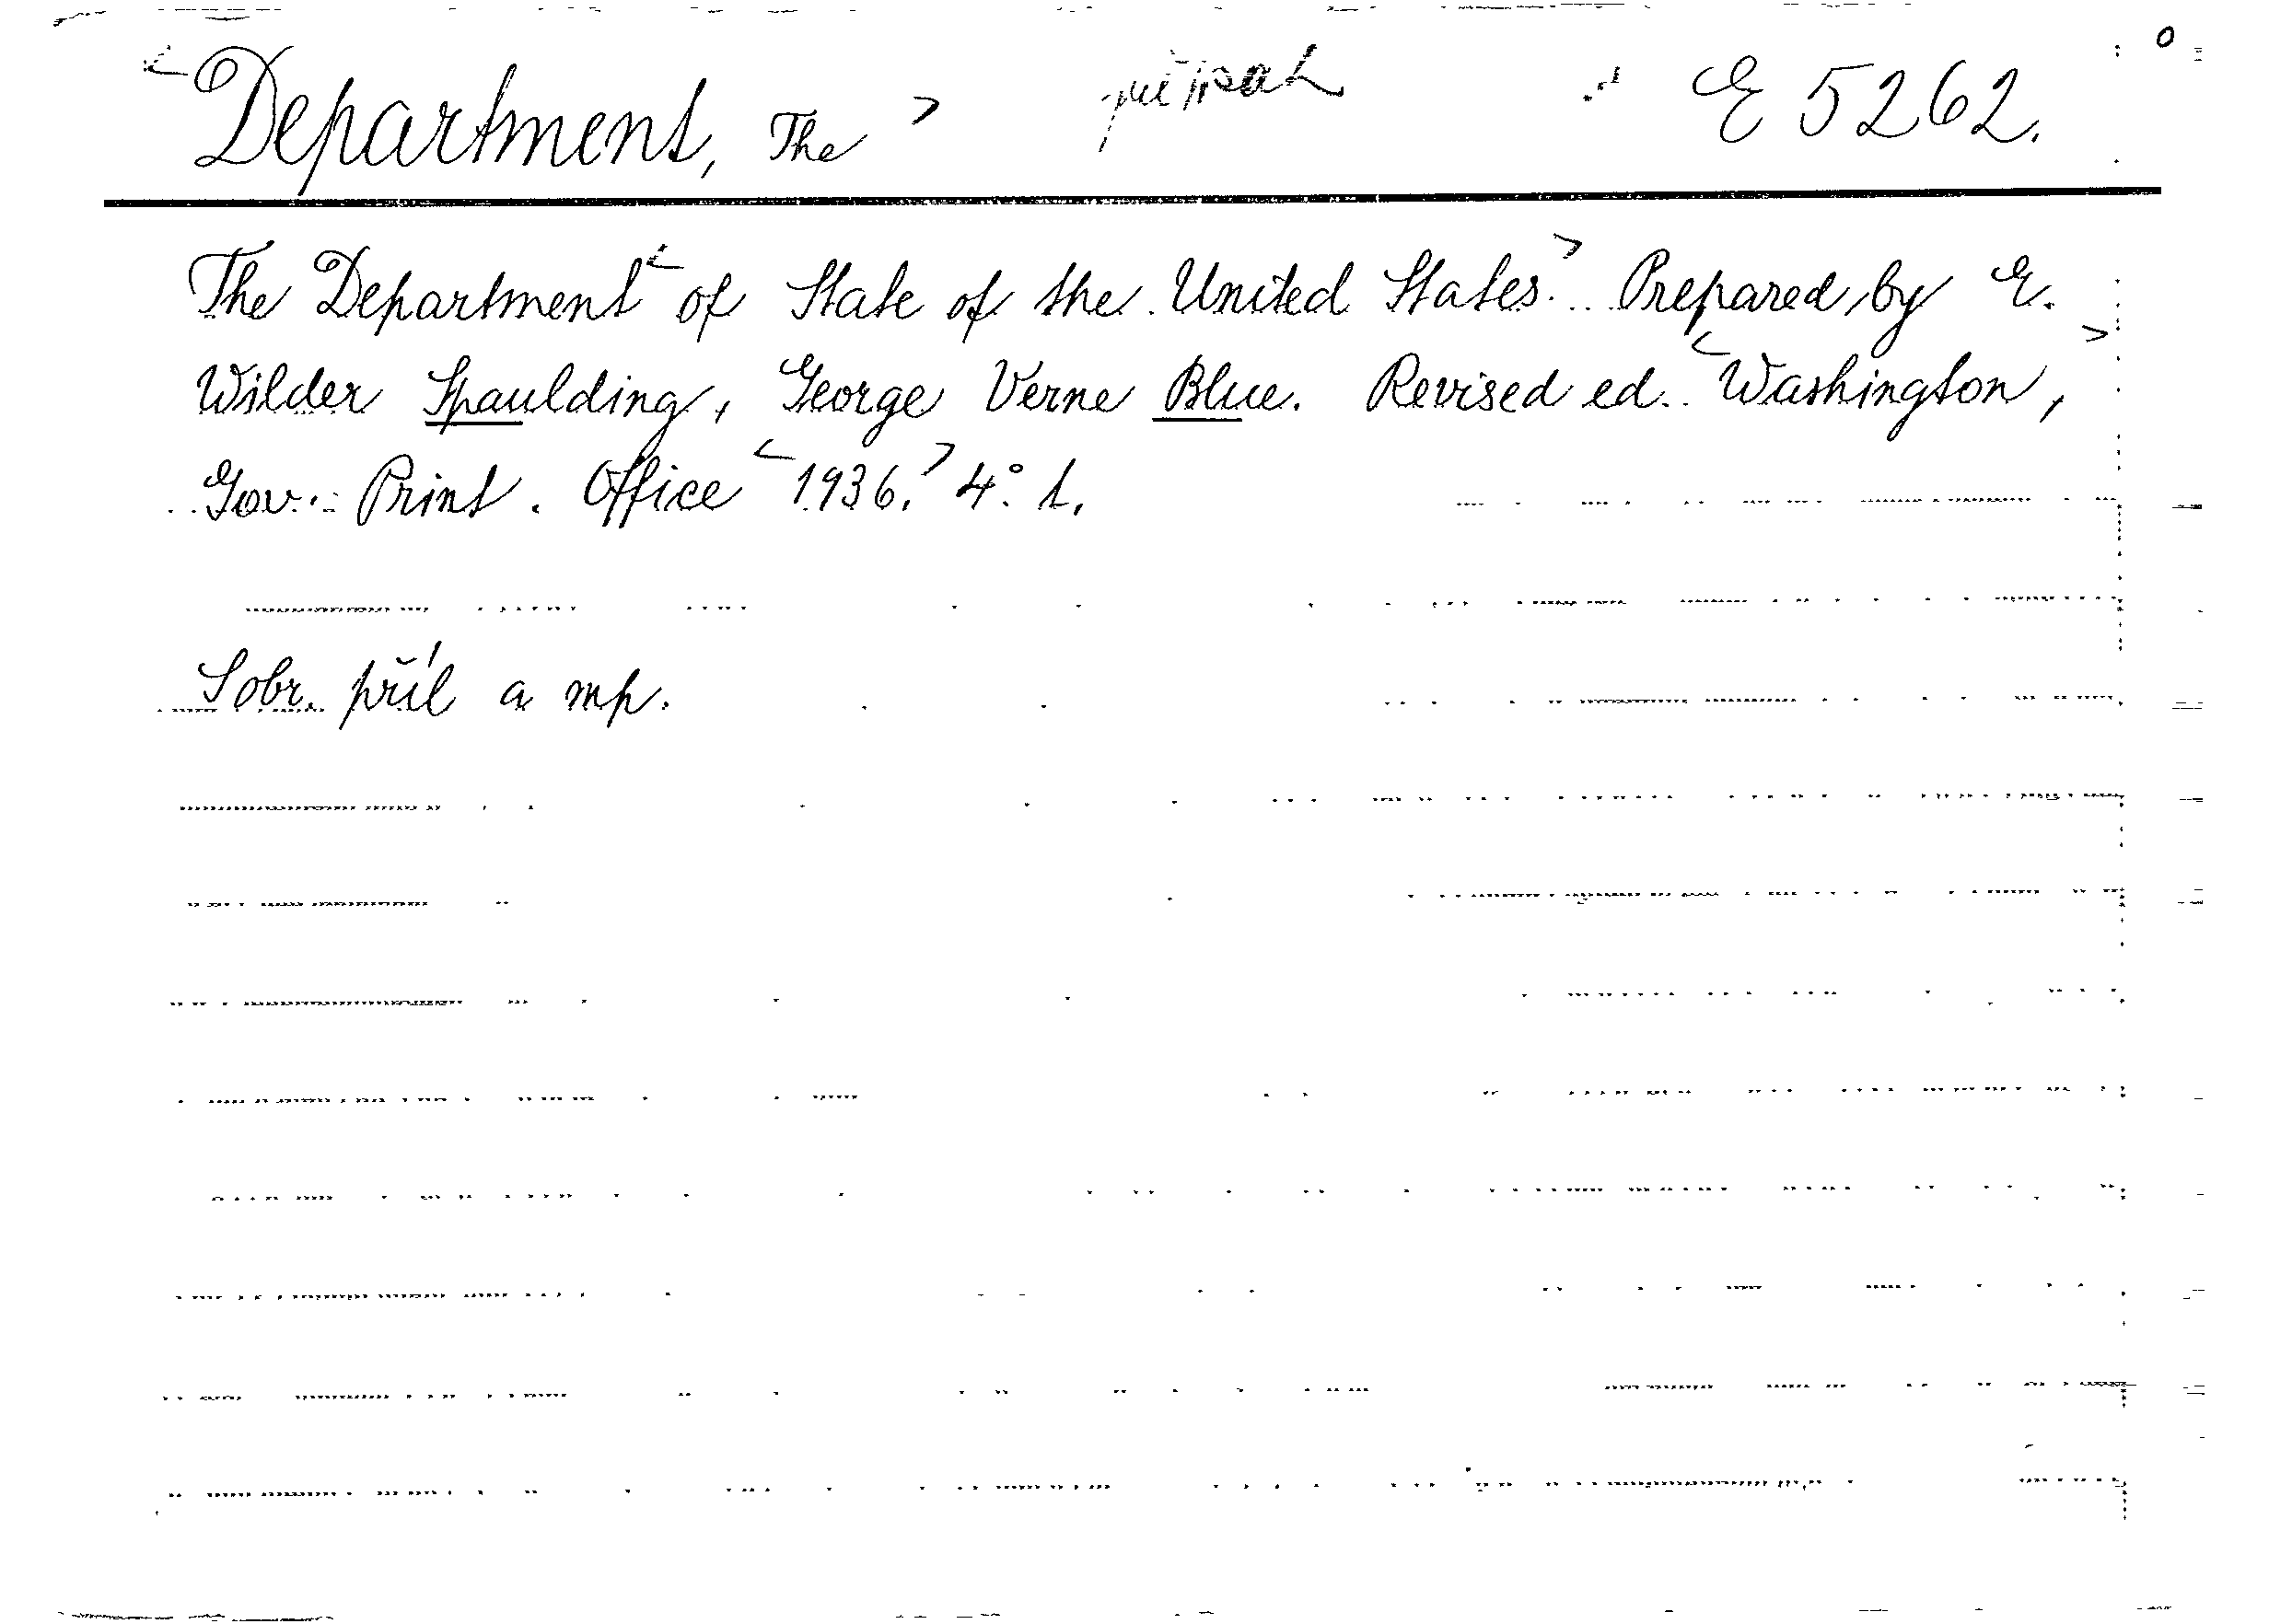 Department, The E 5262.
The Department of State of the United States. Prepared by E.
Wilder Spaulding, George Verne Blue. Revised ed. Washington,
Gov. Print. Office 1936. 4° 1.
S obr. příl a mp.